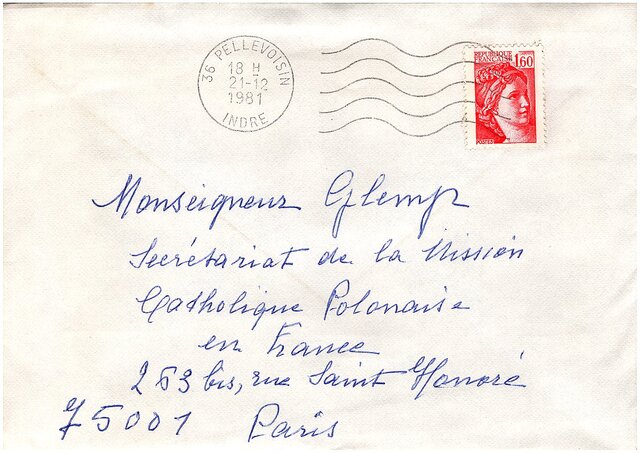 36 PELLEVOISIN
18 H
21-12
1981
INDRE
REPUBLIQUE
FRANCAISE
1,60
POSTES
Monseigneur Glemp
Secrétariat de la Mission
Catholique Polonaise
en France
263 bis, rue Saint Honoré
75001 Paris